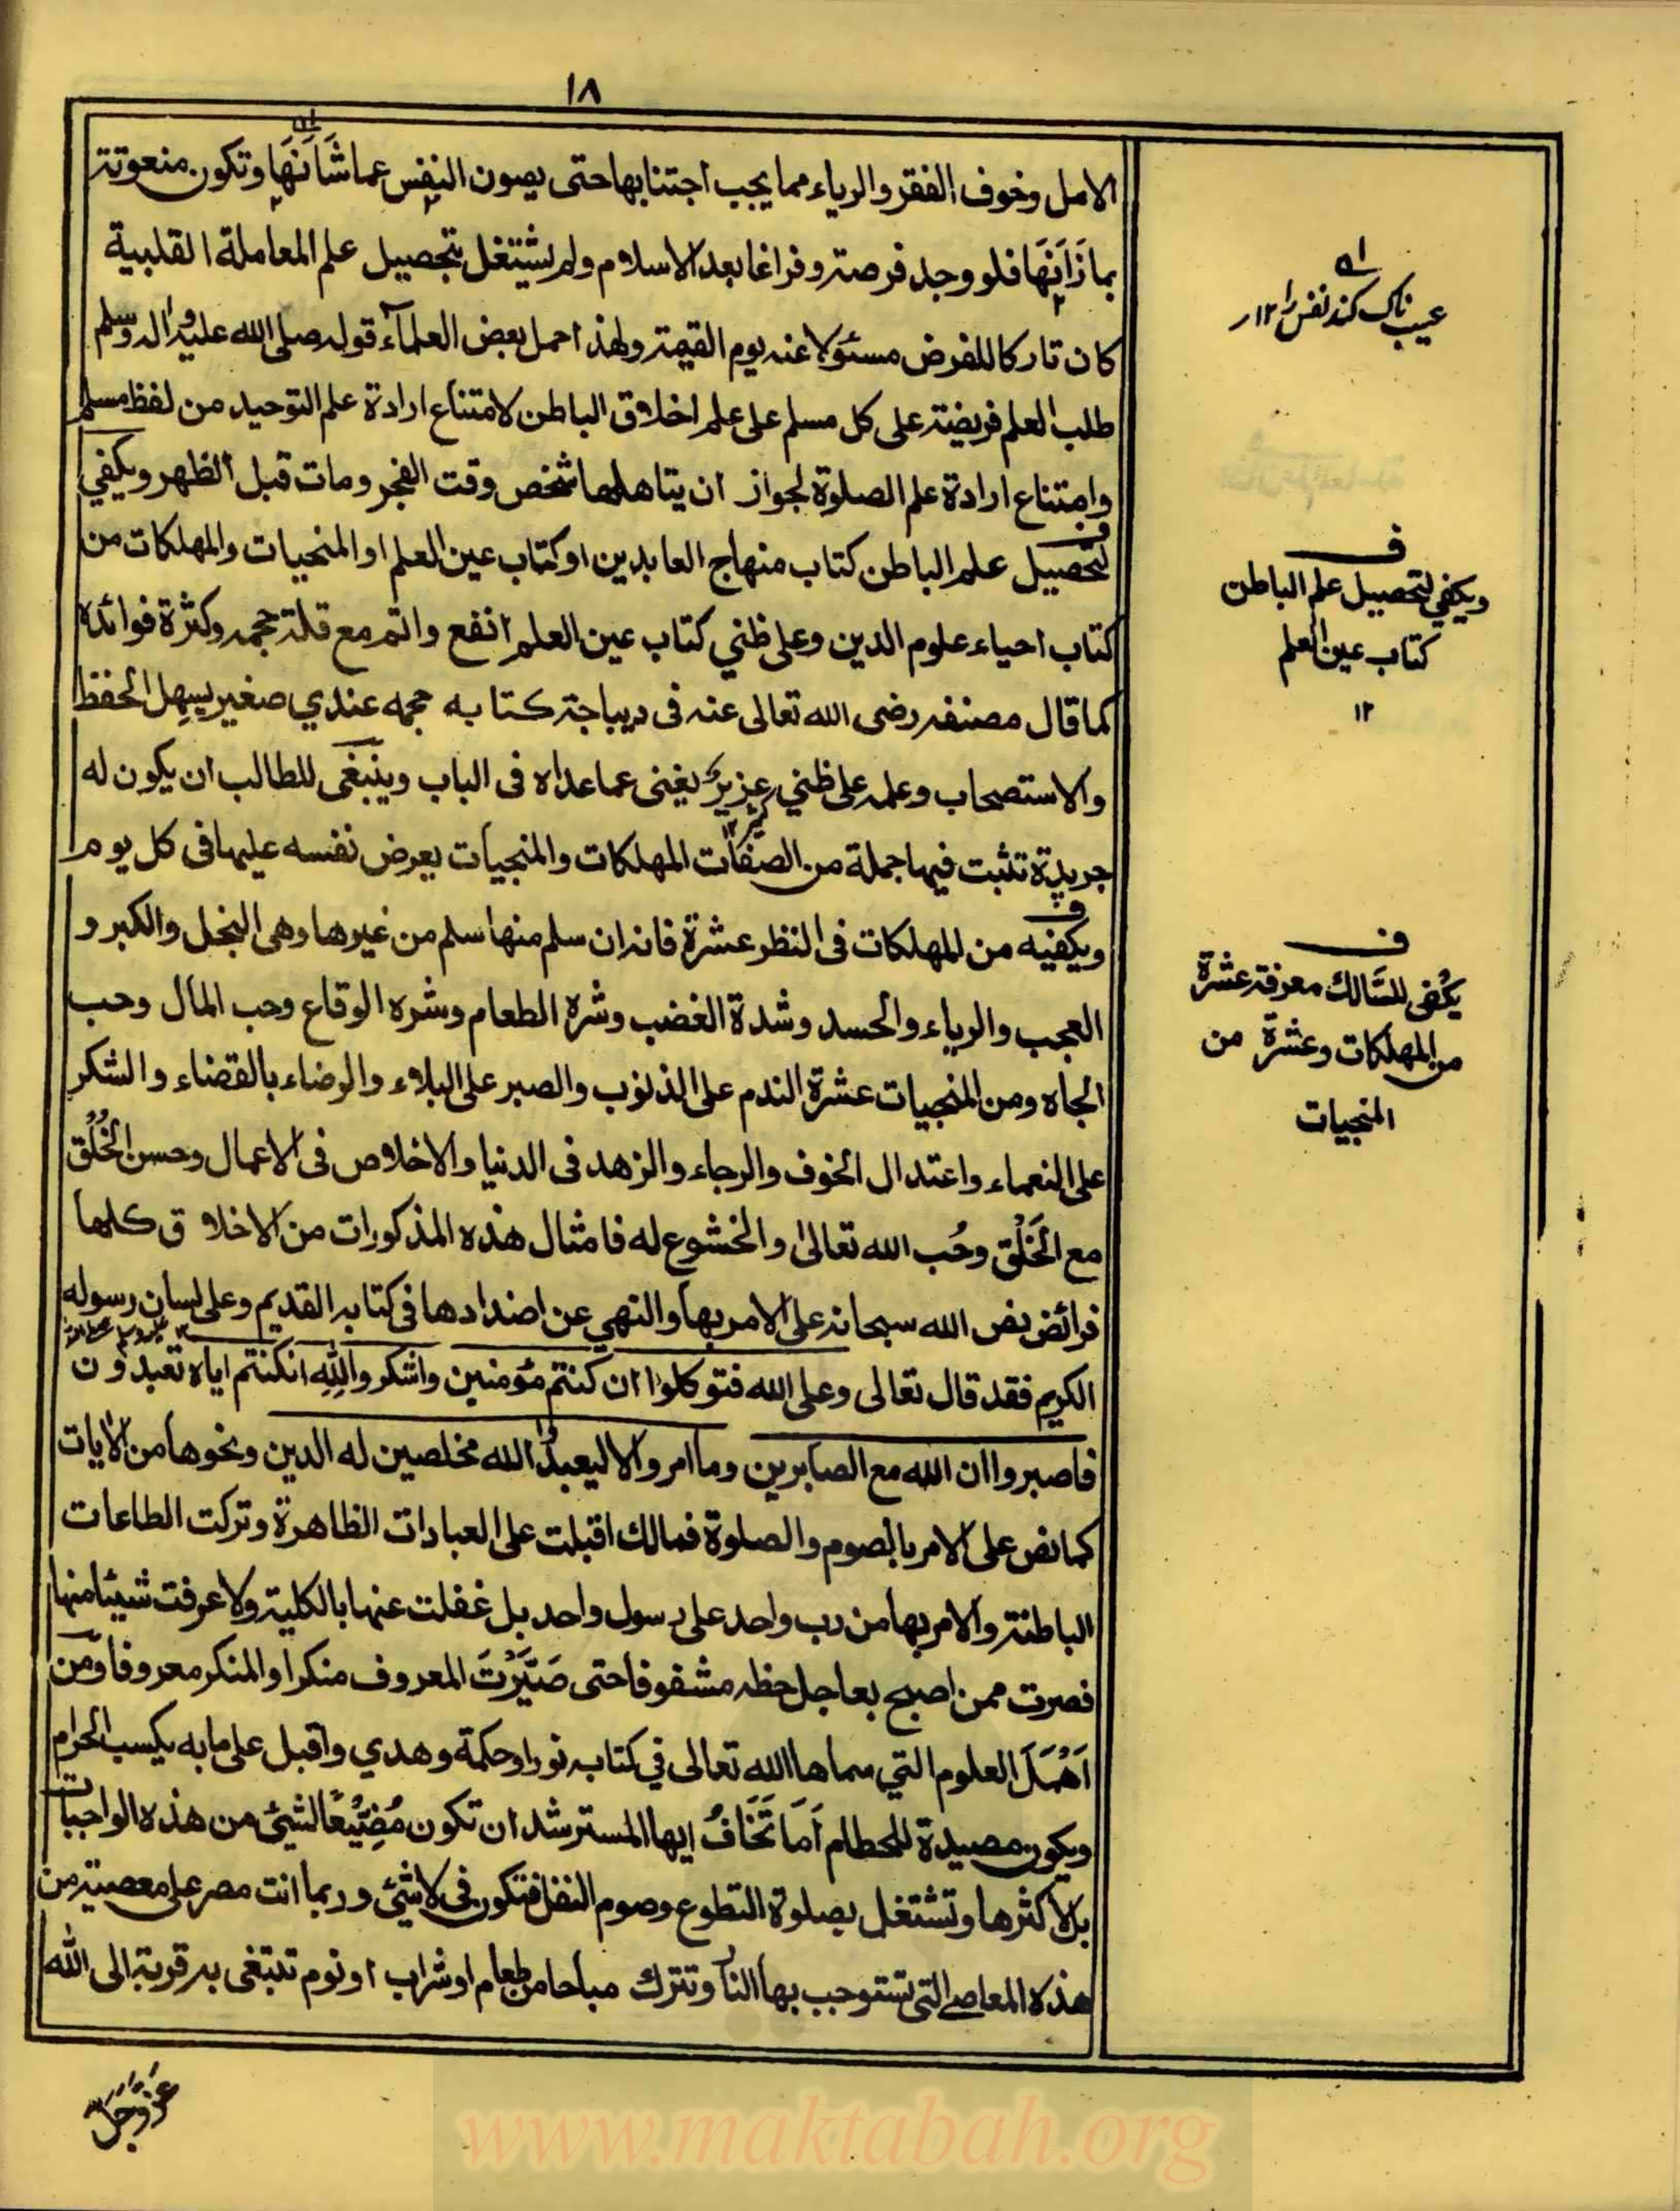 ١٨
الامل وخوف الفقر والرياء مما يجب اجتنابها حتى يصون النفس عما شَانَهَا وتكون منعوتة
بما زَانَهَا فلو وجد فرصة وفراغا بعد الاسلام ولم يشتغل بتحصيل علم المعاملة القلبية
كان تاركا للفرض مسئولا عنه يوم القيمة ولهذا حمل بعض العلماء قوله صلى الله عليه واله وسلم
طلب العلم فريضة على كل مسلم على علم اخلاق الباطن لامتناع ارادة علم التوحيد من لفظ مسلم
وامتناع ارادة علم الصلوة لجواز ان يتاهلها شخص وقت الفجر ومات قبل الظهر ويكفي
لتحصيل علم الباطن كتاب منهاج العابدين او كتاب عين العلم او المنجيات والمهلكات من
كتاب احياء علوم الدين وعلى ظني كتاب عين العلم انفع واتم مع قلة حجمه وكثرة فوائده
كما قال مصنفه رضى الله تعالى عنه فى ديباجة كتابه حجمه عندي صغير يسهل الحفظ
والاستصحاب وعلمه على ظني عزيز يغنى عما عداه فى الباب وينبغى للطالب ان يكون له
جريدة تثبت فيها جملة من الصفات المهلكات والمنجيات يعرض نفسه عليها فى كل يوم
ويكفيه من المهلكات فى النظر عشرة فانه ان سلم منها سلم من غيرها وهى البخل والكبر و
العجب والرياء والحسد وشدة الغضب وشره الطعام وشره الوقاع وحب المال وحب
الجاه ومن المنجيات عشرة الندم على الذنوب والصبر على البلاء والرضاء بالقضاء والشكر
على النعماء واعتدال الخوف والرجاء والزهد فى الدنيا والاخلاص فى الاعمال وحسن الخُلُق
مع الخَلْق وحُب الله تعالى والخشوع له فامثال هذه المذكورات من الاخلاق كلها
فرائض نص الله سبحانه على الامر بها والنهي عن اضدادها فى كتابه القديم وعلى لسان رسوله
الكريم فقد قال تعالى وعلى الله فتوكلوا ان كنتم مؤمنين واشكروا لله ان كنتم اياه تعبدون
فاصبروا ان الله مع الصابرين وما امروا الا ليعبدوا الله مخلصين له الدين ونحوها من الايات
كما نص على الامر بالصوم والصلوة فمالك اقبلت على العبادات الظاهرة وتركت الطاعات
الباطنة والامر بها من رب واحد على رسول واحد بل غفلت عنها بالكلية ولا عرفت شيئا منها
فصرت ممن اصبح بعاجل حظه مشفوفا حتى صَيَّرْتَ المعروف منكرا والمنكر معروفا ومن
اَهْمَلَ العلوم التي سماها الله تعالى في كتابه نورا وحكمة وهدي واقبل على ما به يكسب الحرام
ويكون مصيدة للحطام اَمَا تَخَافُ ايها المسترشد ان تكون مُضَيِّعًا لشيئ من هذه الواجبات
بل لاكثرها وتشتغل بصلوة التطوع وصوم النفل فتكون فى لا شيئ وربما انت مصر على معصية من
هذه المعاصي التى تستوجب بها النار وتترك مباحا من طعام او شراب او نوم تبتغى به قربة الى الله
عز وجل
عيب ناك كند نفس را ١٢
ف
ويكفي لتحصيل علم الباطن
كتاب عين العلم
١٢
ف
يكفى للسالك معرفة عشرة
من المهلكات وعشرة من
المنجيات
www.maktabah.org